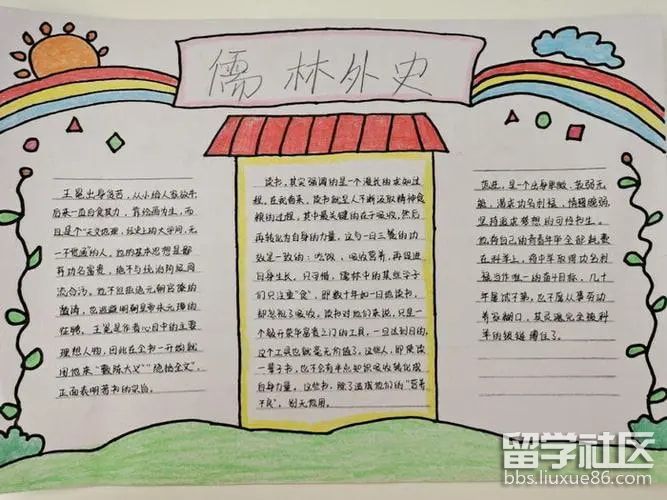 儒林外史
王冕出身贫苦，从小给人家放牛
后来一直自食其力，靠绘画为生，而
且是个"天文地理，经史上的大学问，无
一不贯通"的人。他的基本思想是鄙
弃功名富贵，绝不与统治阶层同
流合污。他不但拒绝元朝官僚的
邀请，也逃避明朝皇帝朱元璋的
征聘。王冕是作者心目中的主要
理想人物，因此在全书一开始就
用他来"敷陈大义""隐括全文"，
正面表明著书的宗旨。
读书，其实强调的是一个漫长的求知过
程，在我看来，读书就是人不断汲取精神食
粮的过程，其中最关键的在于吸收，然后
再转化为自身的力量，这与一日三餐的功
效是一致的：吃饭、吸收营养，再促进
自身生长，只可惜，儒林中的某些学子
们只注重"食"，即数十年如一日地读书，
却忽视了吸收。读书对他们来说，只是一
个敲开荣华富贵之门的工具，一旦达到目的，
这个工具也就毫无价值了。这些人，即使读
一辈子书，也不会有半点知识吸收转化成
自身力量。这些书，除了造成他们的"营养
不良"，别无他用。
范进，是一个出身卑微，贫弱无
能，渴求功名利禄，情猥脆弱，
坚持追求梦想的可怜书生。
他将自己的青春年华全部耗费
在科举上，将中举取得功名利
禄当作唯一的奋斗目标，几十
年屡试不第，也不屑从事劳动
养家糊口，其灵魂完全被科
举的绳链缚住了。
留学社区
bbs.liuxue86.com